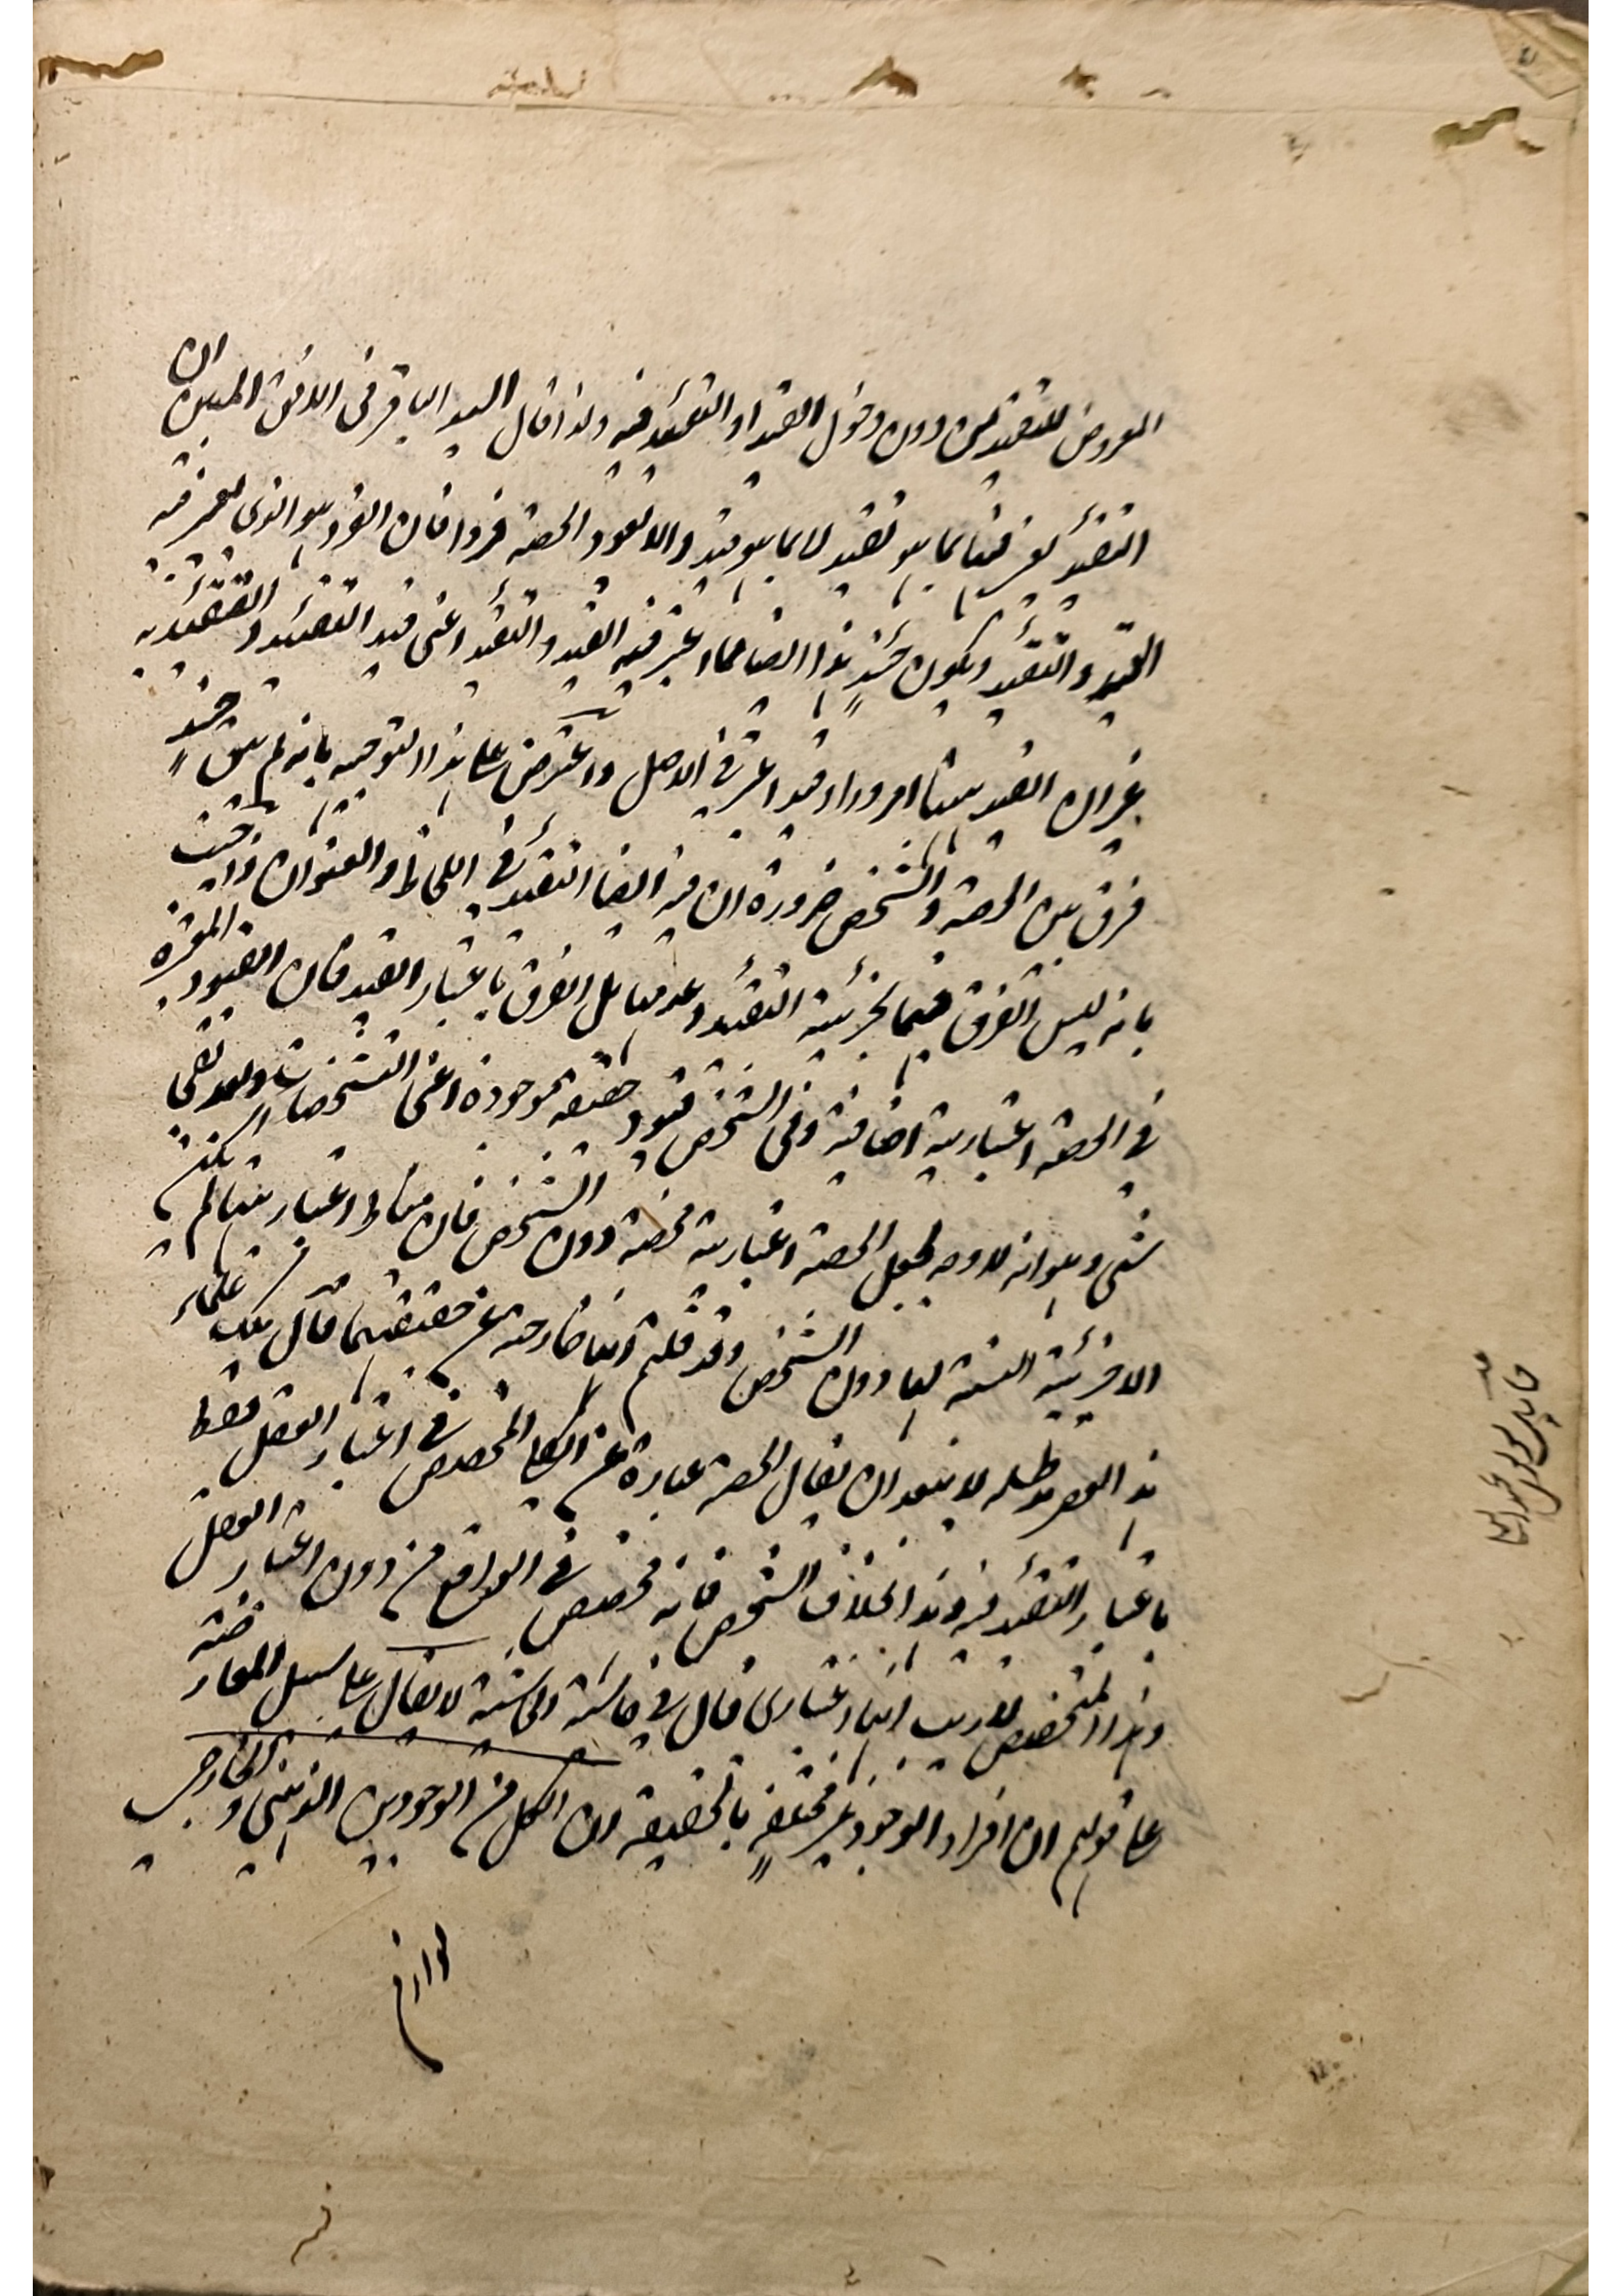 المعروض للتقييد من دون دخول القيد او التقييد فيه ولذا قال السيد الباقر في الافق المبين ان
التقييد يعتبر فيها بما هو تقييد لا بما هو قيد والا تعود الحصة فردا فان الفرد هو الذي يعتبر فيه
القيد والتقييد ويكون حينئذٍ هذا ايضا مما اعتبر فيه القيد والتقييد اعني قيد التقييد والتقييد به
غير ان القيد ههنا امر وراء قيد اعتبر في الاصل واعترض على هذا التوجيه بانه لم يبق حينئذٍ
فرق بين الحصة والشخص ضرورة ان فيه ايضا التقييد في اللحاظ والعنوان واجيب
بانه ليس الفرق فيهما بجزئية التقييد وعدمها بل الفرق باعتبار القيد فان القيود المعتبرة
في الحصة اعتبارية اضافية وفي الشخص قيود حقيقة موجودة اعني التشخصات وبعد بقي
شيء وهو انه لا وجه لجعل الحصة اعتبارية محضة دون الشخص فان مناط اعتباريتها لم يكن
الا جزئية النسبة لها دون الشخص وقد قلتم انها خارجة عن حقيقتهما قال ملك العلماء
هذا العبد مد ظله لا يبعد ان يقال الحصة عبارة عن الكلي المخصص في اعتبار العقل فقط
باعتبار التقييد فيه وهذا بخلاف الشخص فانه مخصص في الواقع من دون اعتبار العقل
وهذا التخصيص لا ريب انها اعتباري قال في حاشية الحاشية لا يقال على سبيل المعارضة
على قولهم ان افراد الوجود غير مختلفةٍ بالحقيقة ان الكل من الوجودين الذهني والخارجي
لوازم